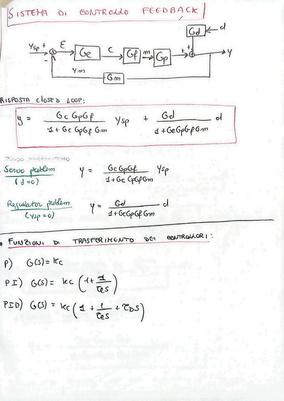 SISTEMA DI CONTROLLO FEEDBACK
Gd d
ysp + ε Gc C Gf m Gp + + y
-
ym Gm
RISPOSTA CLOSED LOOP:
y = Gc Gp Gf / 1 + Gc Gp Gf Gm ysp + Gd / 1 + Gc Gp Gf Gm d
Servo problem (d=0) y = Gc Gp Gf / 1 + Gc Gp Gf Gm ysp
Regulator problem (ysp=0) y = Gd / 1 + Gc Gp Gf Gm d
• FUNZIONI DI TRASFERIMENTO DEI CONTROLLORI:
P) G(s) = Kc
PI) G(s) = Kc (1 + 1/τIs)
PID) G(s) = Kc (1 + 1/τIs + τDs)